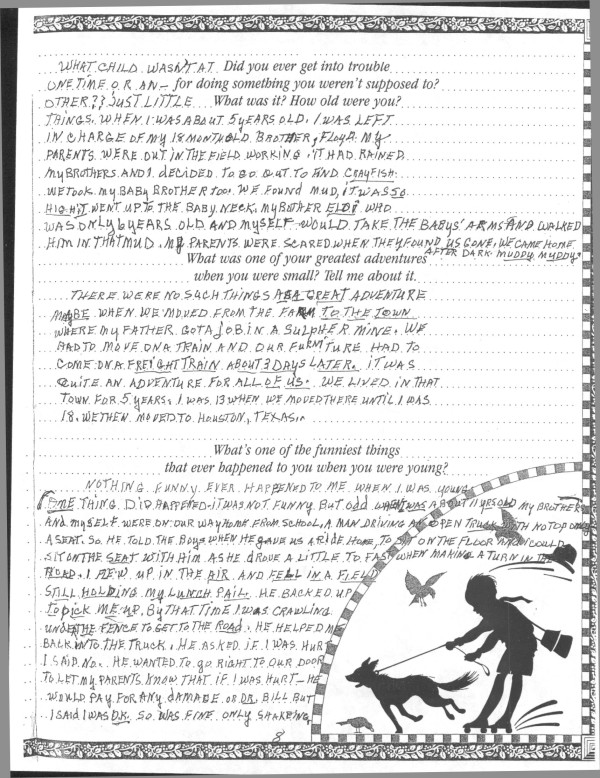 WHAT CHILD WASN'T AT Did you ever get into trouble
ONE TIME OR AN- for doing something you weren't supposed to?
OTHER?? JUST LITTLE What was it? How old were you?
THINGS. WHEN I WAS ABOUT 5 YEARS OLD, I WAS LEFT
IN CHARGE OF MY 18 MONTH OLD BROTHER, FLOYD. MY
PARENTS WERE OUT IN THE FIELD WORKING. IT HAD RAINED
MY BROTHERS AND I DECIDED TO GO OUT TO FIND CRAYFISH.
WE TOOK MY BABY BROTHER TOO. WE FOUND MUD, IT WAS SO
HIGH IT WENT UP TO THE BABY NECK. MY BROTHER WHO
WAS ONLY 6 YEARS OLD AND MYSELF WOULD TAKE THE BABYS' ARMS AND WALKED
HIM IN THAT MUD. MY PARENTS WERE SCARED WHEN THEY FOUND US GONE, WE CAME HOME
AFTER DARK. MUDDY, MUDDY.
What was one of your greatest adventures
when you were small? Tell me about it.
THERE WERE NO SUCH THINGS AS A GREAT ADVENTURE
MAYBE WHEN WE MOVED FROM THE FARM TO THE TOWN
WHERE MY FATHER GOT A JOB IN A SULPHER MINE. WE
HAD TO MOVE ON A TRAIN AND OUR FURNITURE HAD TO
COME ON A FREIGHT TRAIN ABOUT 3 DAYS LATER. IT WAS
QUITE AN ADVENTURE FOR ALL OF US. WE LIVED IN THAT
TOWN FOR 5 YEARS. I WAS 13 WHEN WE MOVED THERE UNTIL I WAS
18. WE THEN MOVED TO HOUSTON, TEXAS.
What's one of the funniest things
that ever happened to you when you were young?
NOTHING FUNNY EVER HAPPENED TO ME WHEN I WAS YOUNG
ONE THING DID HAPPENED - IT WAS NOT FUNNY BUT ODD WHEN I WAS ABOUT 11 YRS OLD MY BROTHER
AND MYSELF WERE ON OUR WAY HOME FROM SCHOOL, A MAN DRIVING AN OPEN TRUCK WITH NO TOP ONLY
A SEAT. SO HE TOLD THE BOYS WHEN HE GAVE US A RIDE HOME, TO SIT ON THE FLOOR AND I COULD
SIT ON THE SEAT WITH HIM. AS HE DROVE A LITTLE TO FAST WHEN MAKING A TURN IN THE
ROAD. I FLEW UP IN THE AIR AND FELL IN A FIELD
STILL HOLDING MY LUNCH PAIL. HE BACKED UP
TO PICK ME UP. BY THAT TIME I WAS CRAWLING
UNDER THE FENCE TO GET TO THE ROAD. HE HELPED ME
BACK INTO THE TRUCK. HE ASKED IF I WAS HURT
I SAID NO. HE WANTED TO GO RIGHT TO OUR DOOR
TO LET MY PARENTS KNOW THAT IF I WAS HURT - HE
WOULD PAY FOR ANY DAMAGE OR DR. BILL BUT
I SAID I WAS O.K. SO WAS FINE ONLY SHAKEING
8